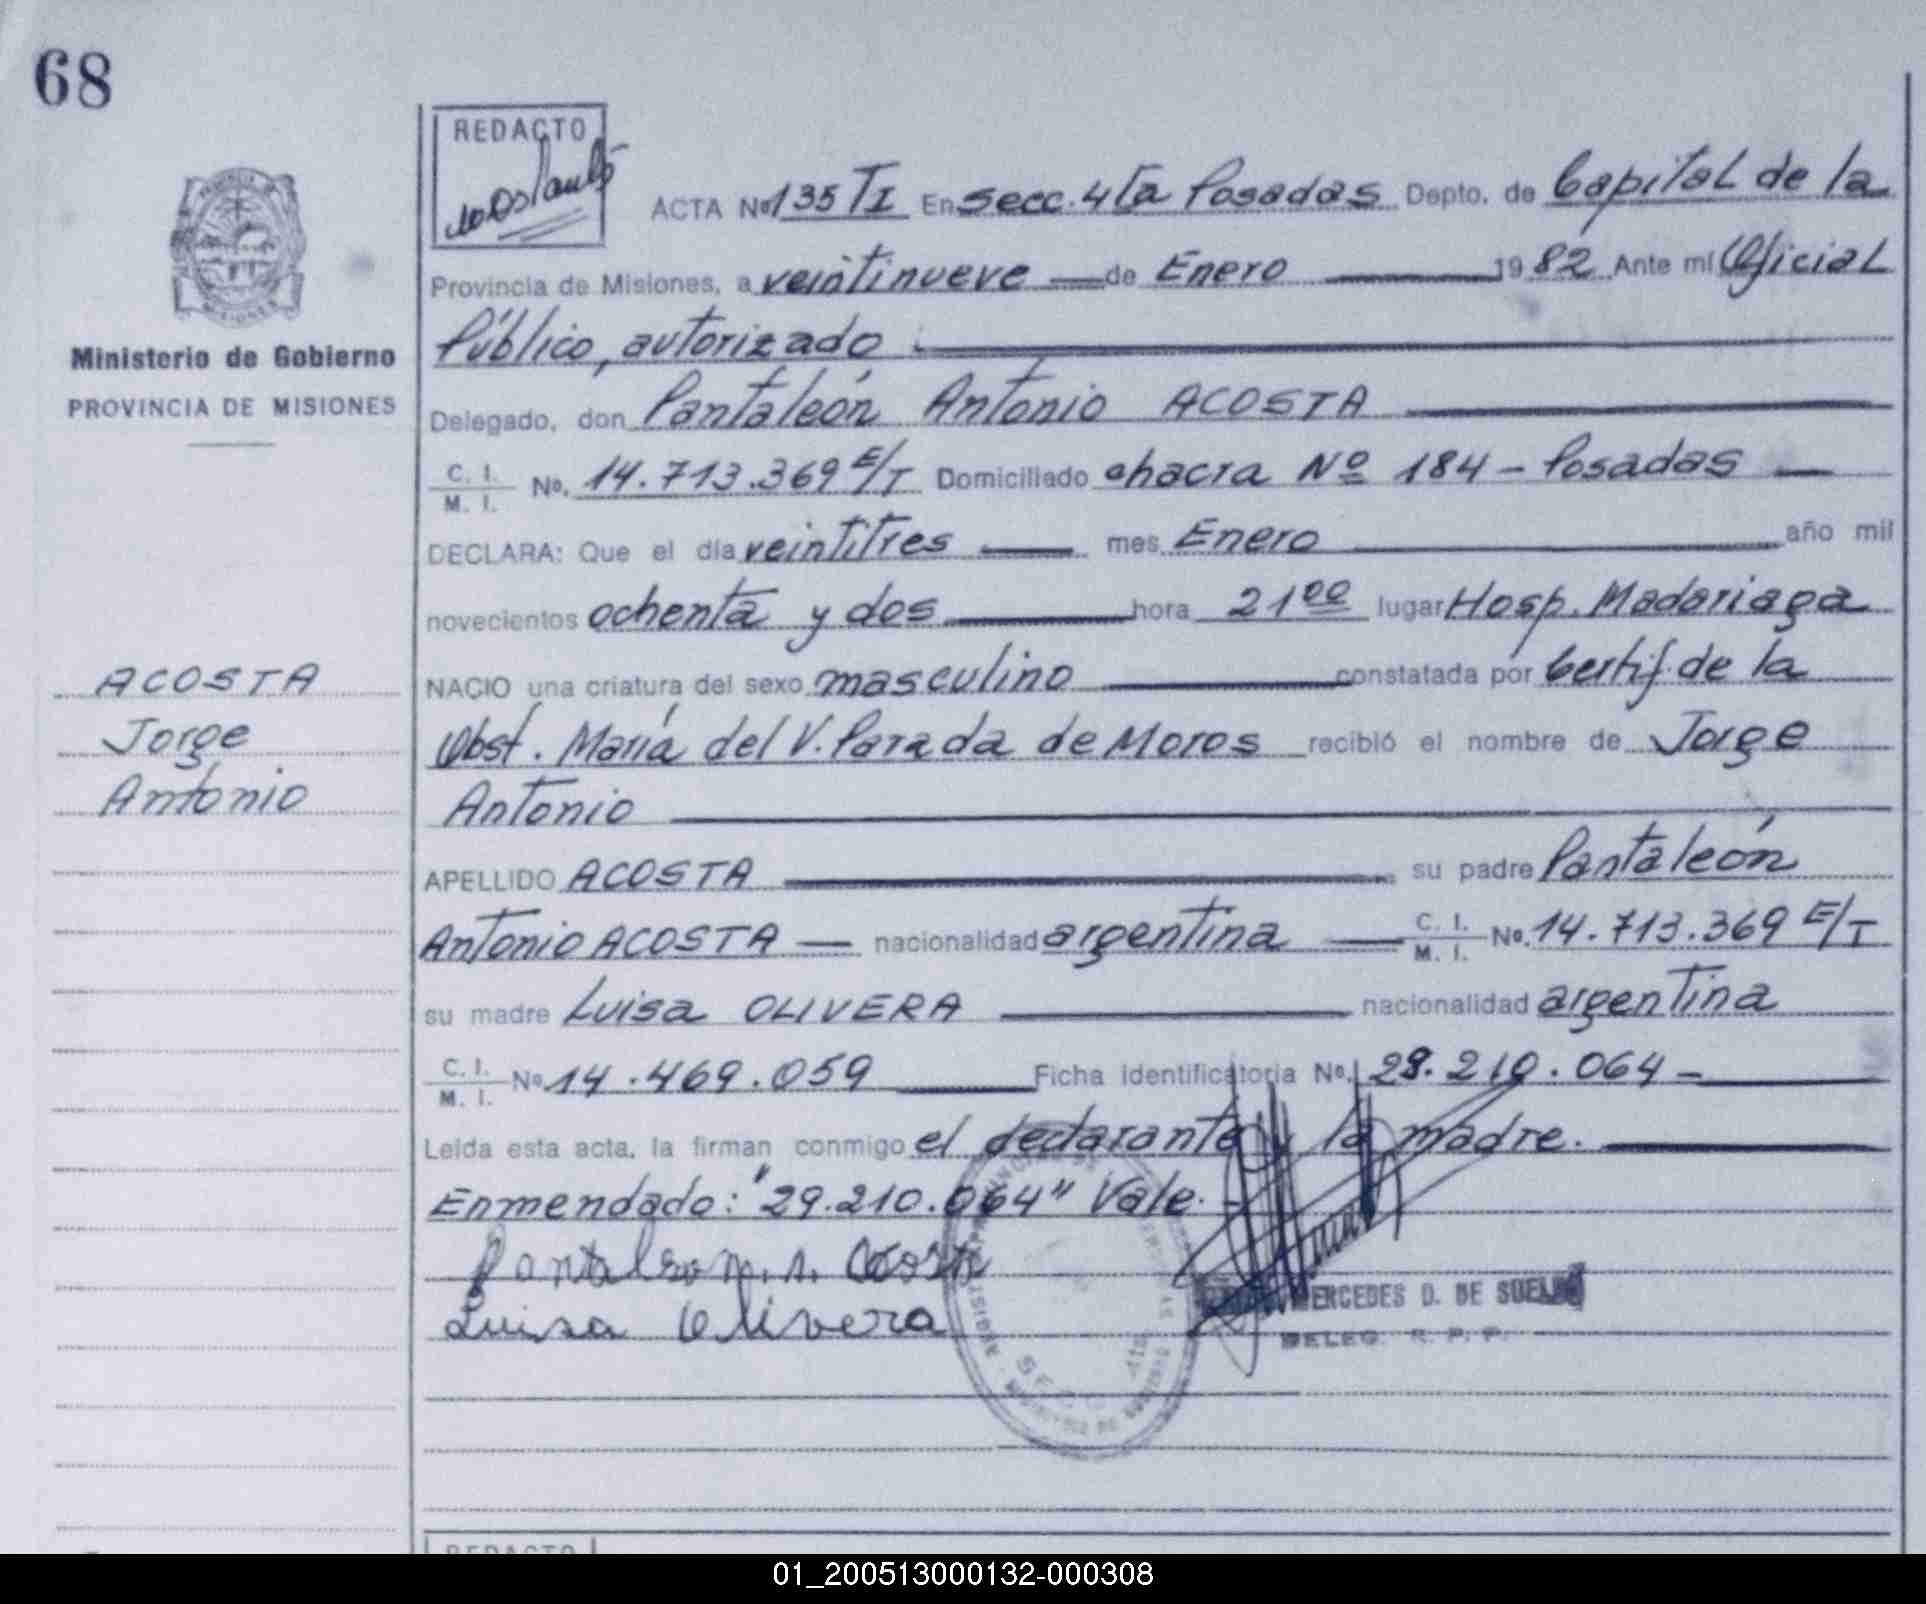 68
REDACTO
ACTA Nº 135 TI En Secc. 4ta Posadas Depto. de Capital de la
Provincia de Misiones, a veintinueve de Enero 1982 Ante mí Oficial
Público, autorizado
Delegado, don Pantaleón Antonio ACOSTA
C. I.
M. I. No. 14.713.369 E/T Domiciliado chacra Nº 184 - Posadas
DECLARA: Que el día veintitres mes Enero año mil
novecientos ochenta y dos hora 21 00 lugar Hosp. Madariaga
NACIO una criatura del sexo masculino constatada por Certif. de la
Obst. María del V. Parada de Moros recibió el nombre de Jorge
Antonio
APELLIDO ACOSTA su padre Pantaleón
Antonio ACOSTA nacionalidad argentina C. I.
M. I. No. 14.713.369 E/T
su madre Luisa OLIVERA nacionalidad argentina
C. I.
M. I. No 14.469.059 Ficha Identificatoria No. 29.210.064 -
Leída esta acta, la firman conmigo el declarante y la madre.
Enmendado: "29.210.064" Vale. -
Luisa Olivera
MERCEDES D. DE
DELEG. R. P. P.
PROVINCIA DE
MISIONES
Ministerio de Gobierno
PROVINCIA DE MISIONES
ACOSTA
Jorge
Antonio
REDACTO
01_200513000132-000308